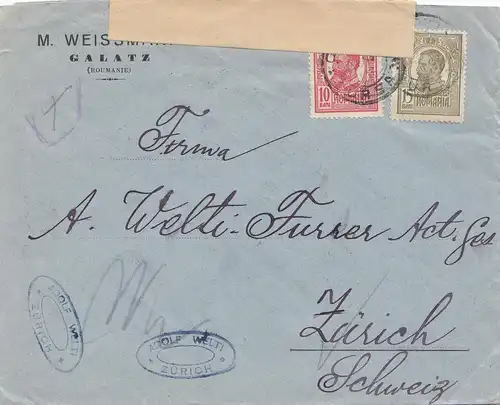 M. WEISSMAN
GALATZ
(ROUMANIE)
10
BANI
ROMANIA
15
ROMANIA
Firma
A. Welti-Furrer Act. Ges
Zürich
Schweiz
ADOLF WELTI
ZÜRICH
ADOLF WELTI
ZÜRICH